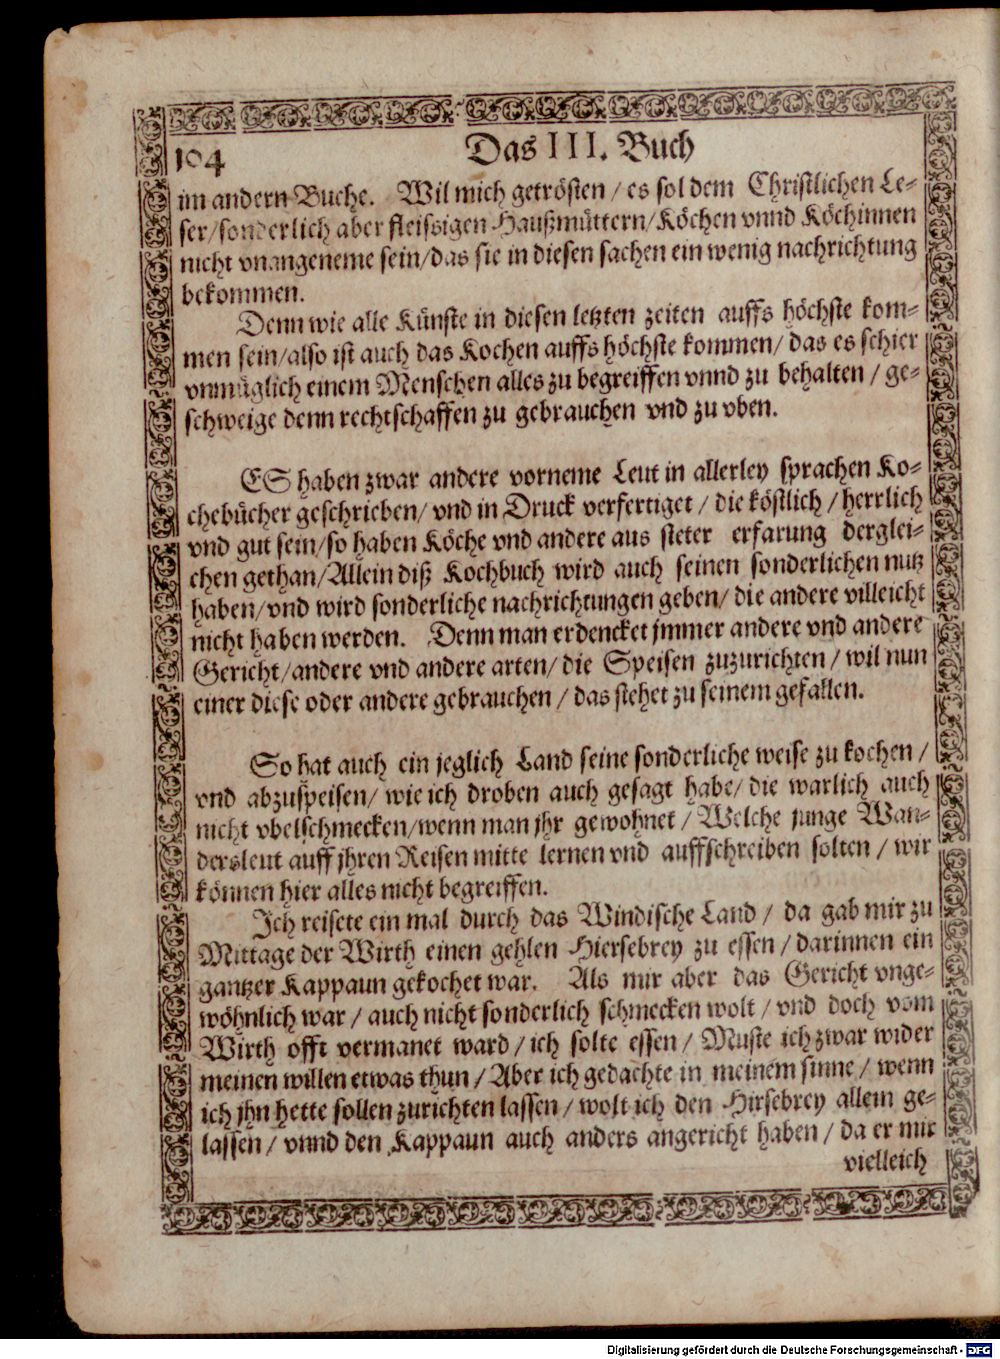 104
Das III. Buch
im andern Buche. Wil mich getrösten / es sol dem Christlichen Le-
ser/sonderlich aber fleissigen Haußmüttern/Köchen vnnd Köchinnen
nicht vnangeneme sein/das sie in diesen sachen ein wenig nachrichtung
bekommen.
Denn wie alle Künste in diesen letzten zeiten auffs höchste kom-
men sein/also ist auch das Kochen auffs höchste kommen/ das es schier
vnmüglich einem Menschen alles zu begreiffen vnnd zu behalten / ge-
schweige denn rechtschaffen zu gebrauchen vnd zu vben.
ES haben zwar andere vorneme Leut in allerley sprachen Ko-
chebücher geschrieben/ vnd in Druck verfertiget / die köstlich / herrlich
vnd gut sein/so haben Köche vnd andere aus steter erfarung derglei-
chen gethan/Allein diß Kochbuch wird auch seinen sonderlichen nutz
haben/vnd wird sonderliche nachrichtungen geben/ die andere villeicht
nicht haben werden. Denn man erdencket jmmer andere vnd andere
Gericht/andere vnd andere arten/ die Speisen zuzurichten / wil nun
einer diese oder andere gebrauchen / das stehet zu seinem gefallen.
So hat auch ein jeglich Land seine sonderliche weise zu kochen /
vnd abzuspeisen/ wie ich droben auch gesagt habe/ die warlich auch
nicht vbelschmecken/wenn man jhr gewohnet / Welche junge Wan-
dersleut auff jhren Reisen mitte lernen vnd auffschreiben solten / wir
können hier alles nicht begreiffen.
Ich reisete ein mal durch das Windische Land / da gab mir zu
Mittage der Wirth einen gehlen Hiersebrey zu essen / darinnen ein
gantzer Kappaun gekochet war. Als mir aber das Gericht vnge-
wöhnlich war / auch nicht sonderlich schmecken wolt / vnd doch vom
Wirth offt vermanet ward / ich solte essen / Muste ich zwar wider
meinen willen etwas thun / Aber ich gedachte in meinem sinne / wenn
ich jhn hette sollen zurichten lassen / wolt ich den Hirsebrey allein ge-
lassen / vnnd den Kappaun auch anders angericht haben / da er mir
vielleich
Digitalisierung gefördert durch die Deutsche Forschungsgemeinschaft - DFG